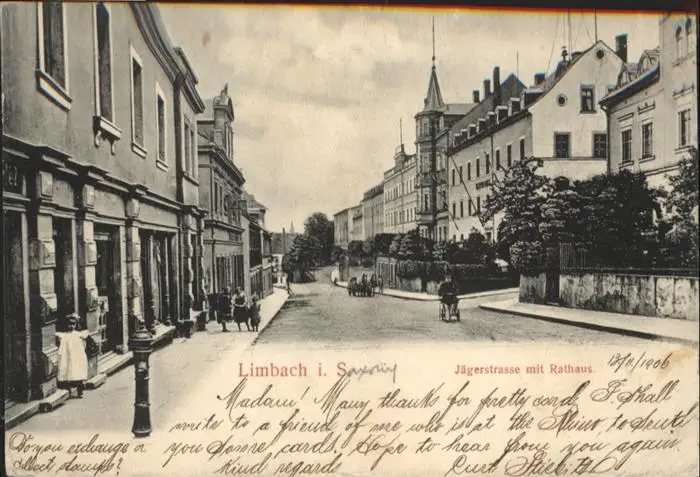 Limbach i. Saxony
Jägerstrasse mit Rathaus.
13/11/1906
Madam! Many thanks for pretty card. I shall
write to a friend of me who is at the Rhine, to send
you some cards. Hope to hear from you again.
Kind regards Curt
Do you exchange or
collect stamps?